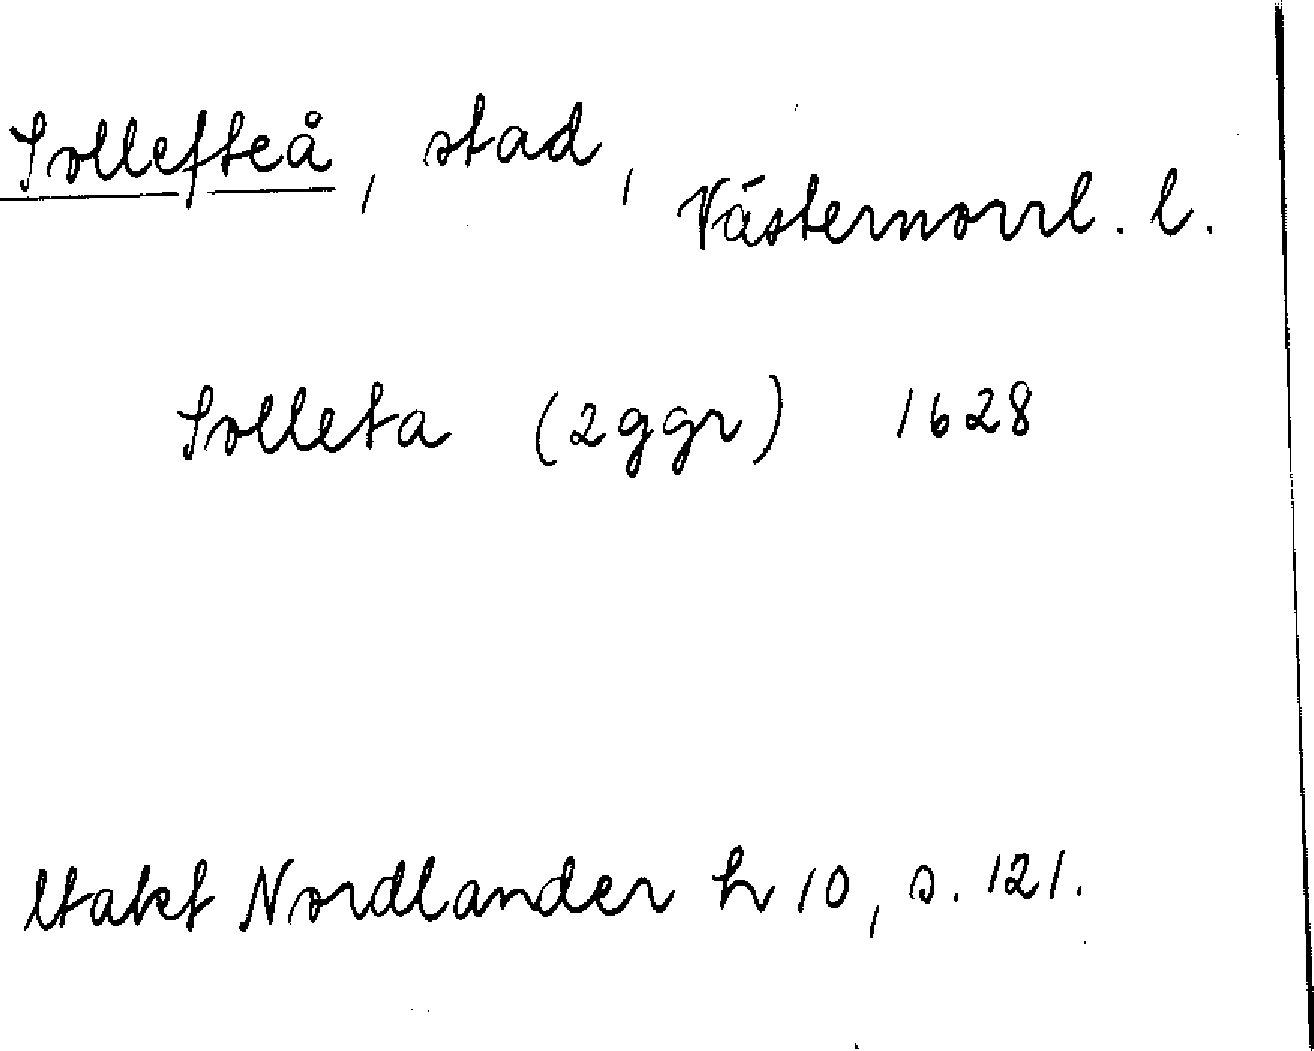 Sollefteå, stad, Västernorrl. l.
Solleta (2 ggr) 1628
Utakt Nordlander h 10, s. 121.